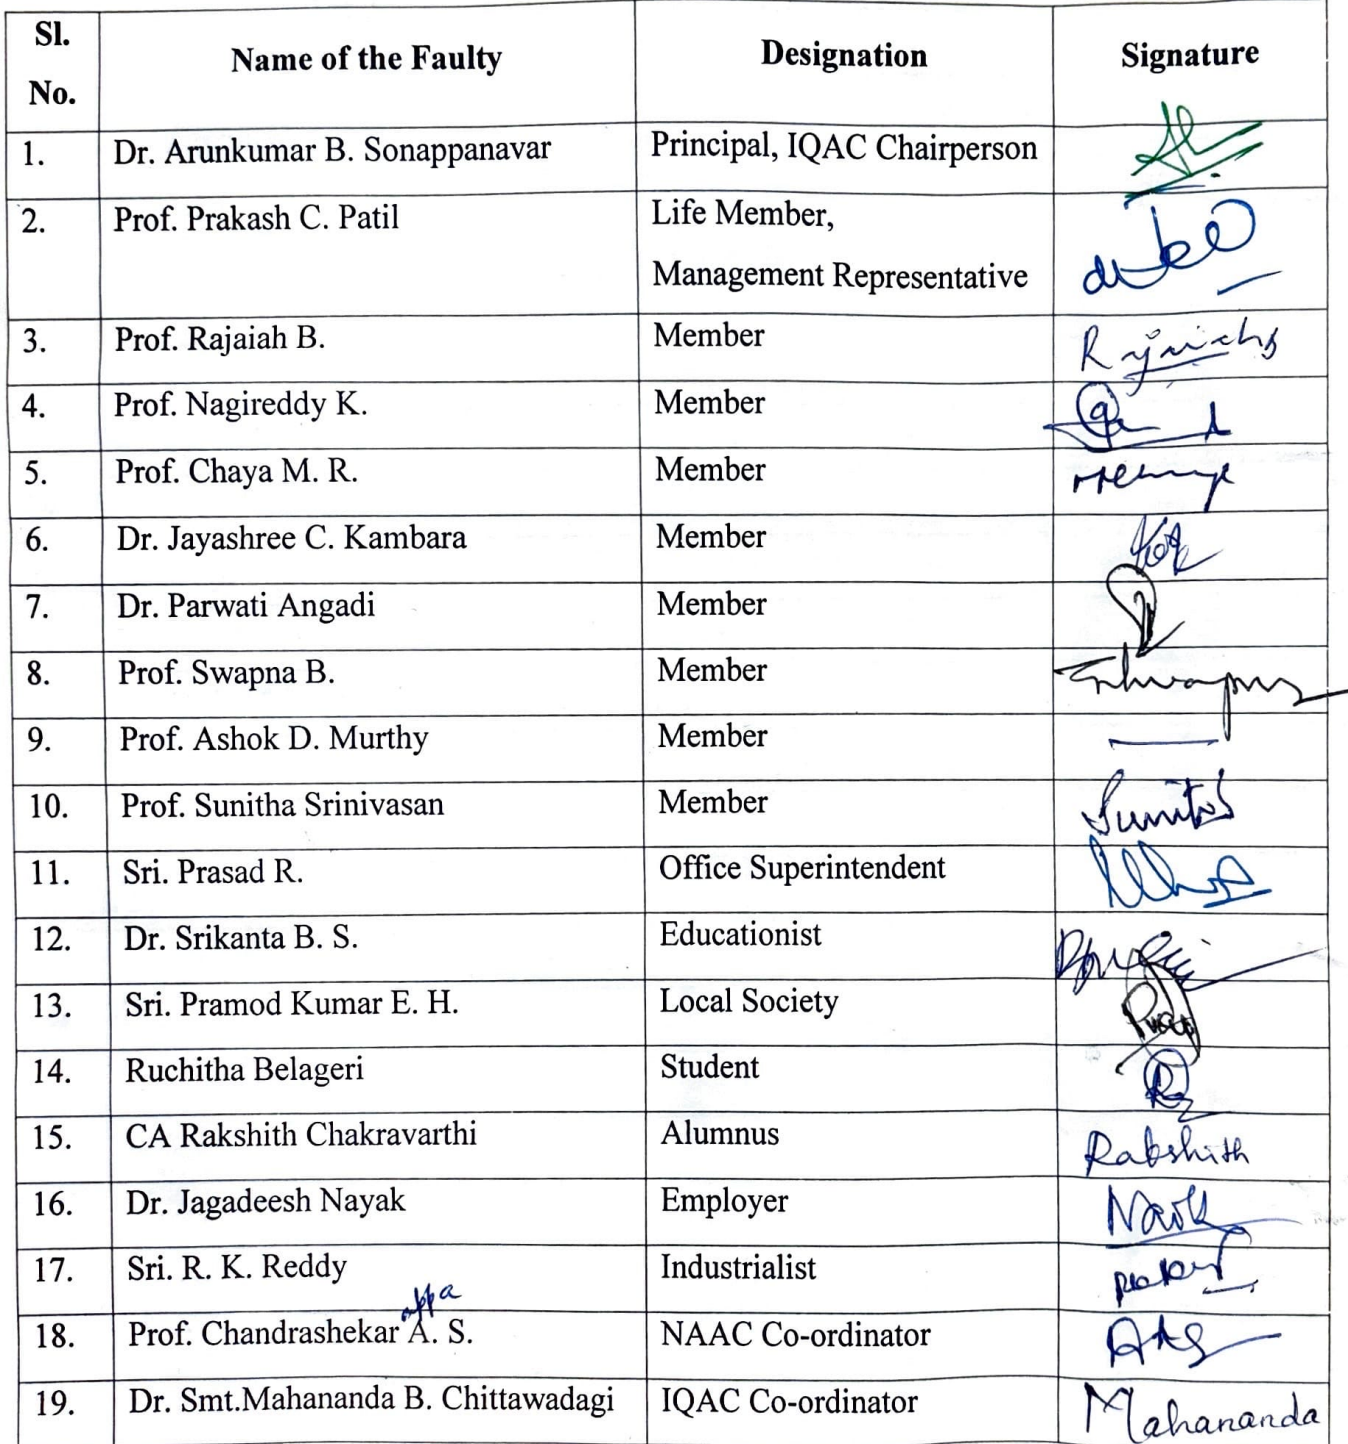 Sl. No. Name of the Faulty Designation Signature
1. Dr. Arunkumar B. Sonappanavar Principal, IQAC Chairperson
2. Prof. Prakash C. Patil Life Member,
Management Representative
3. Prof. Rajaiah B. Member
4. Prof. Nagireddy K. Member
5. Prof. Chaya M. R. Member
6. Dr. Jayashree C. Kambara Member
7. Dr. Parwati Angadi Member
8. Prof. Swapna B. Member
9. Prof. Ashok D. Murthy Member
10. Prof. Sunitha Srinivasan Member
11. Sri. Prasad R. Office Superintendent
12. Dr. Srikanta B. S. Educationist
13. Sri. Pramod Kumar E. H. Local Society
14. Ruchitha Belageri Student
15. CA Rakshith Chakravarthi Alumnus Rakshith
16. Dr. Jagadeesh Nayak Employer
17. Sri. R. K. Reddy Industrialist
appa
18. Prof. Chandrashekar A. S. NAAC Co-ordinator
19. Dr. Smt.Mahananda B. Chittawadagi IQAC Co-ordinator Mahananda